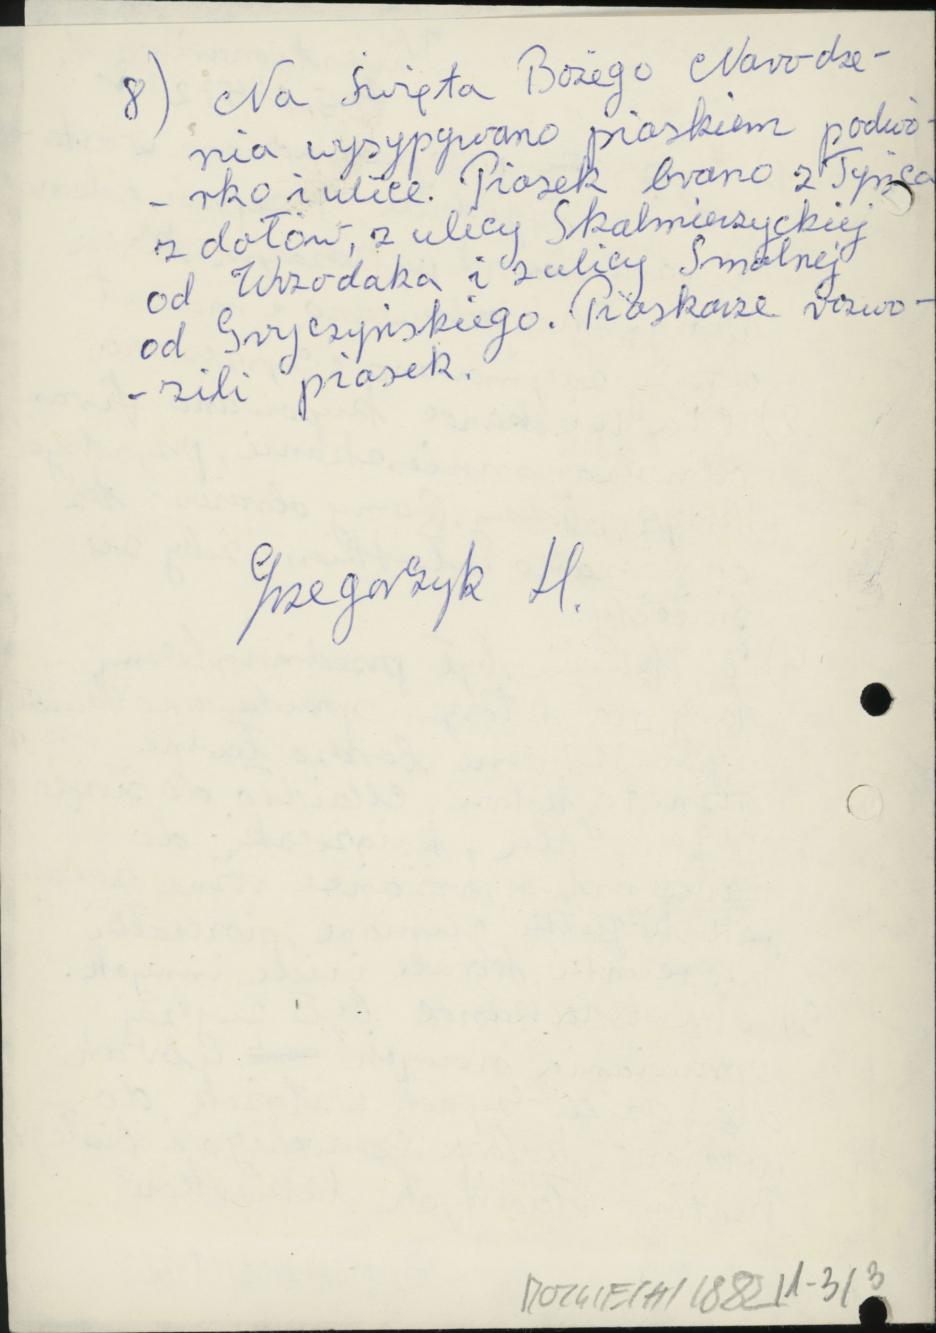 8) Na Święta Bożego Narodze-
nia wysypywano piaskiem podwó-
- rko i ulice. Piasek brano z Tyńca
z dołów, z ulicy Skalmierzyckiej
od Wrzodaka i z ulicy Smolnej
od Gryczyńskiego. Piaskarze rozwo-
- zili piasek.
Grzegorzyk H.
1-3/3